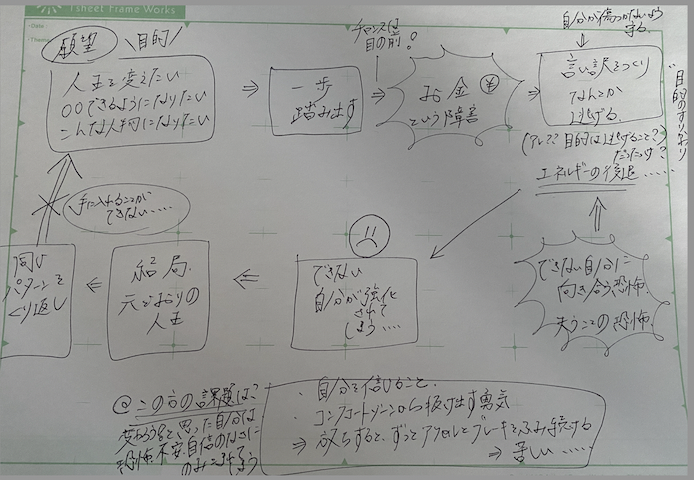 Tsheet Frame Works
Date
Theme
願望
\目的/
人生を変えたい
○○できるようになりたい
こんな人物になりたい
⇒
一歩
踏み出す
チャンスは
目の前!
⇒
お金 ¥
という障害
⇒
自分が傷つかないよう
守る
↓
言い訳をつくり
なんとか
逃げる
"目的のすりかわり
(アレ?? 目的は逃げること?
だったっけ?
エネルギーの後退……
できない自分に
向き合う恐怖
失うことの恐怖
できない
自分が強化
されて
しまう……
⇐
結局、
元どおりの
人生
⇐
同じ
パターンを
くり返し
手に入れることが
できない……
@この方の課題は?
変わろうと思った自分は
恐怖、不安、自信のなさに
のみこまれてしまう
・自分を信じること、
・コンフォートゾーンから抜け出す勇気
⇒ ずっとアクセルとブレーキをふみ続ける
⇒ 苦しい……